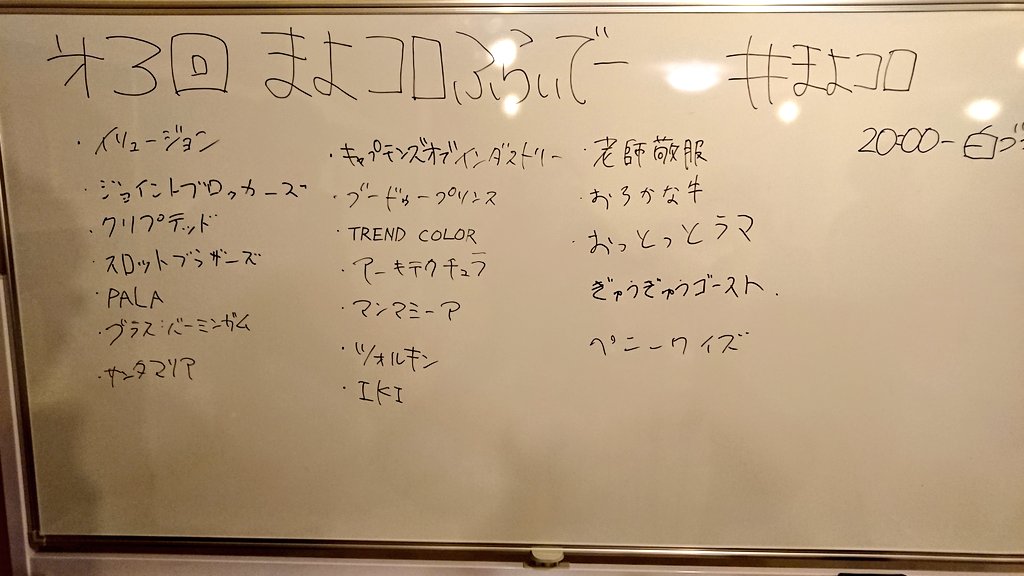 才3回 まよコロふらいでー #まよコロ
・イリュージョン
・ジョイントブロッカーズ
・クリプテッド
・スロットブラザーズ
・PALA
・ブラス:バーミンガム
・サンタマリア
・キャプテンズオブインダストリー
・ブードゥープリンス
TREND COLOR
・アーキテクチュラ
・マンマミーア
・ツォルキン
・IKI
・老師敬服
・おろかな牛
・おっとっとラマ
ぎゅうぎゅうゴースト.
ペニーワイズ
20:00-